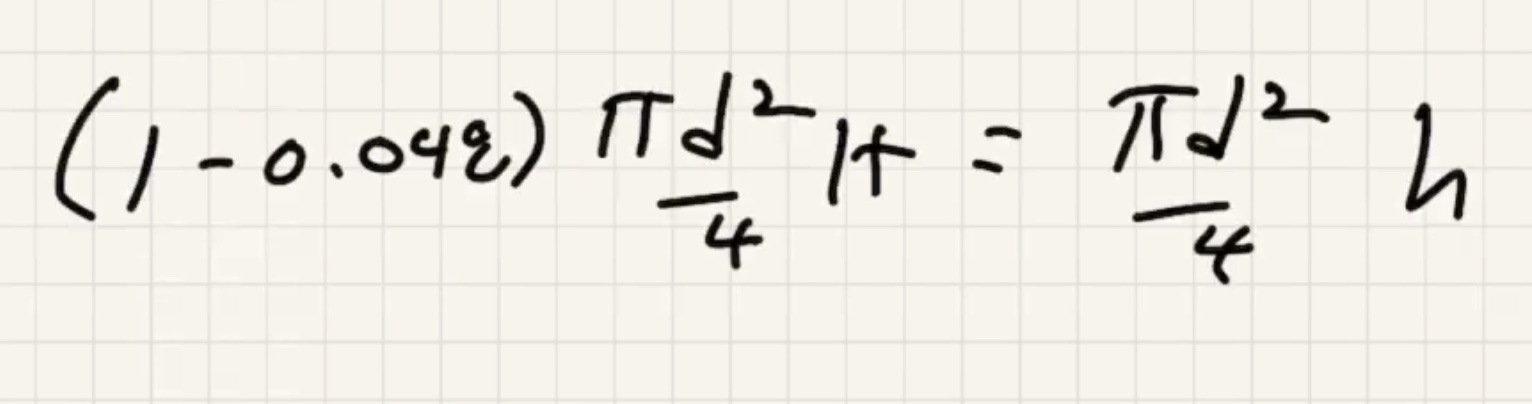 (1 - 0.048) πd²/4 H = πd²/4 h